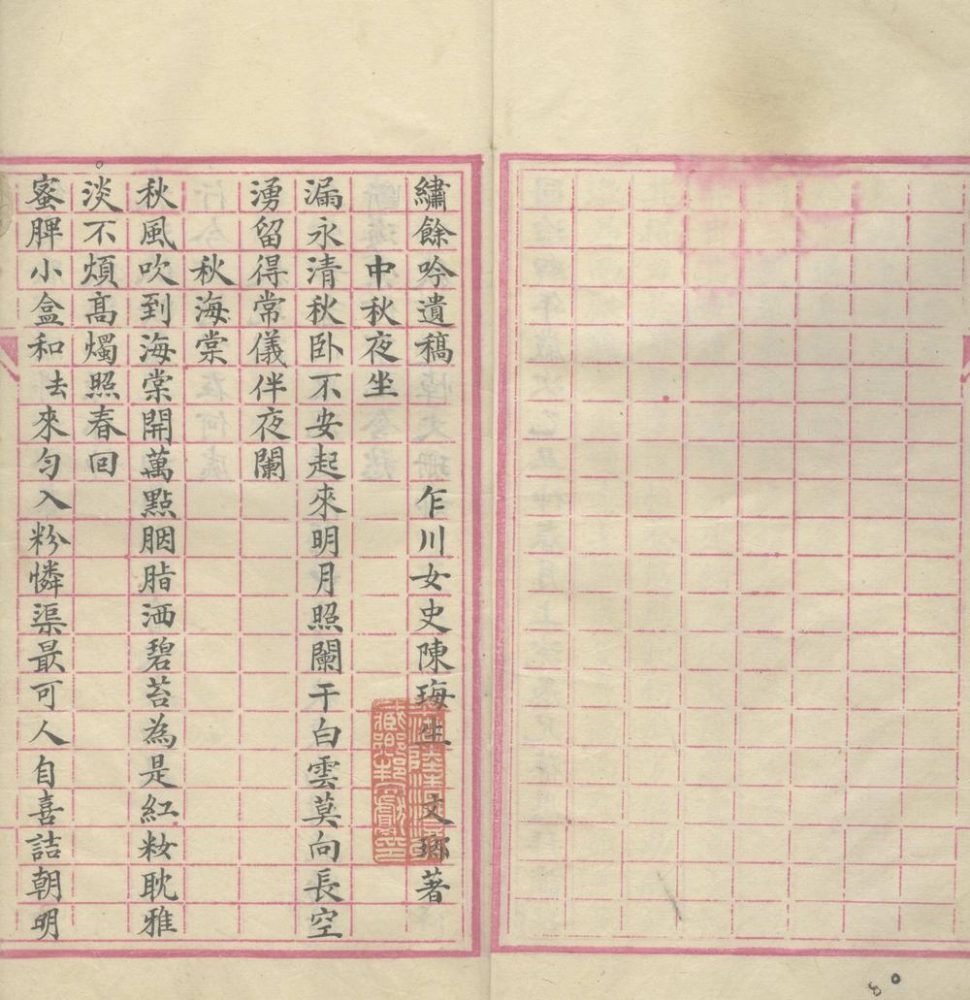 繡餘吟遺稿 乍川女史陳珻生 文鄉著
中秋夜坐
漏永清秋卧不安起來明月照闌干白雲莫向長空
湧留得常儀伴夜闌
秋海棠
秋風吹到海棠開萬點胭脂洒碧苔為是紅妝耽雅
淡不煩高燭照春回
蜜脾小盒和去來勻入粉憐渠最可人自喜詰朝明